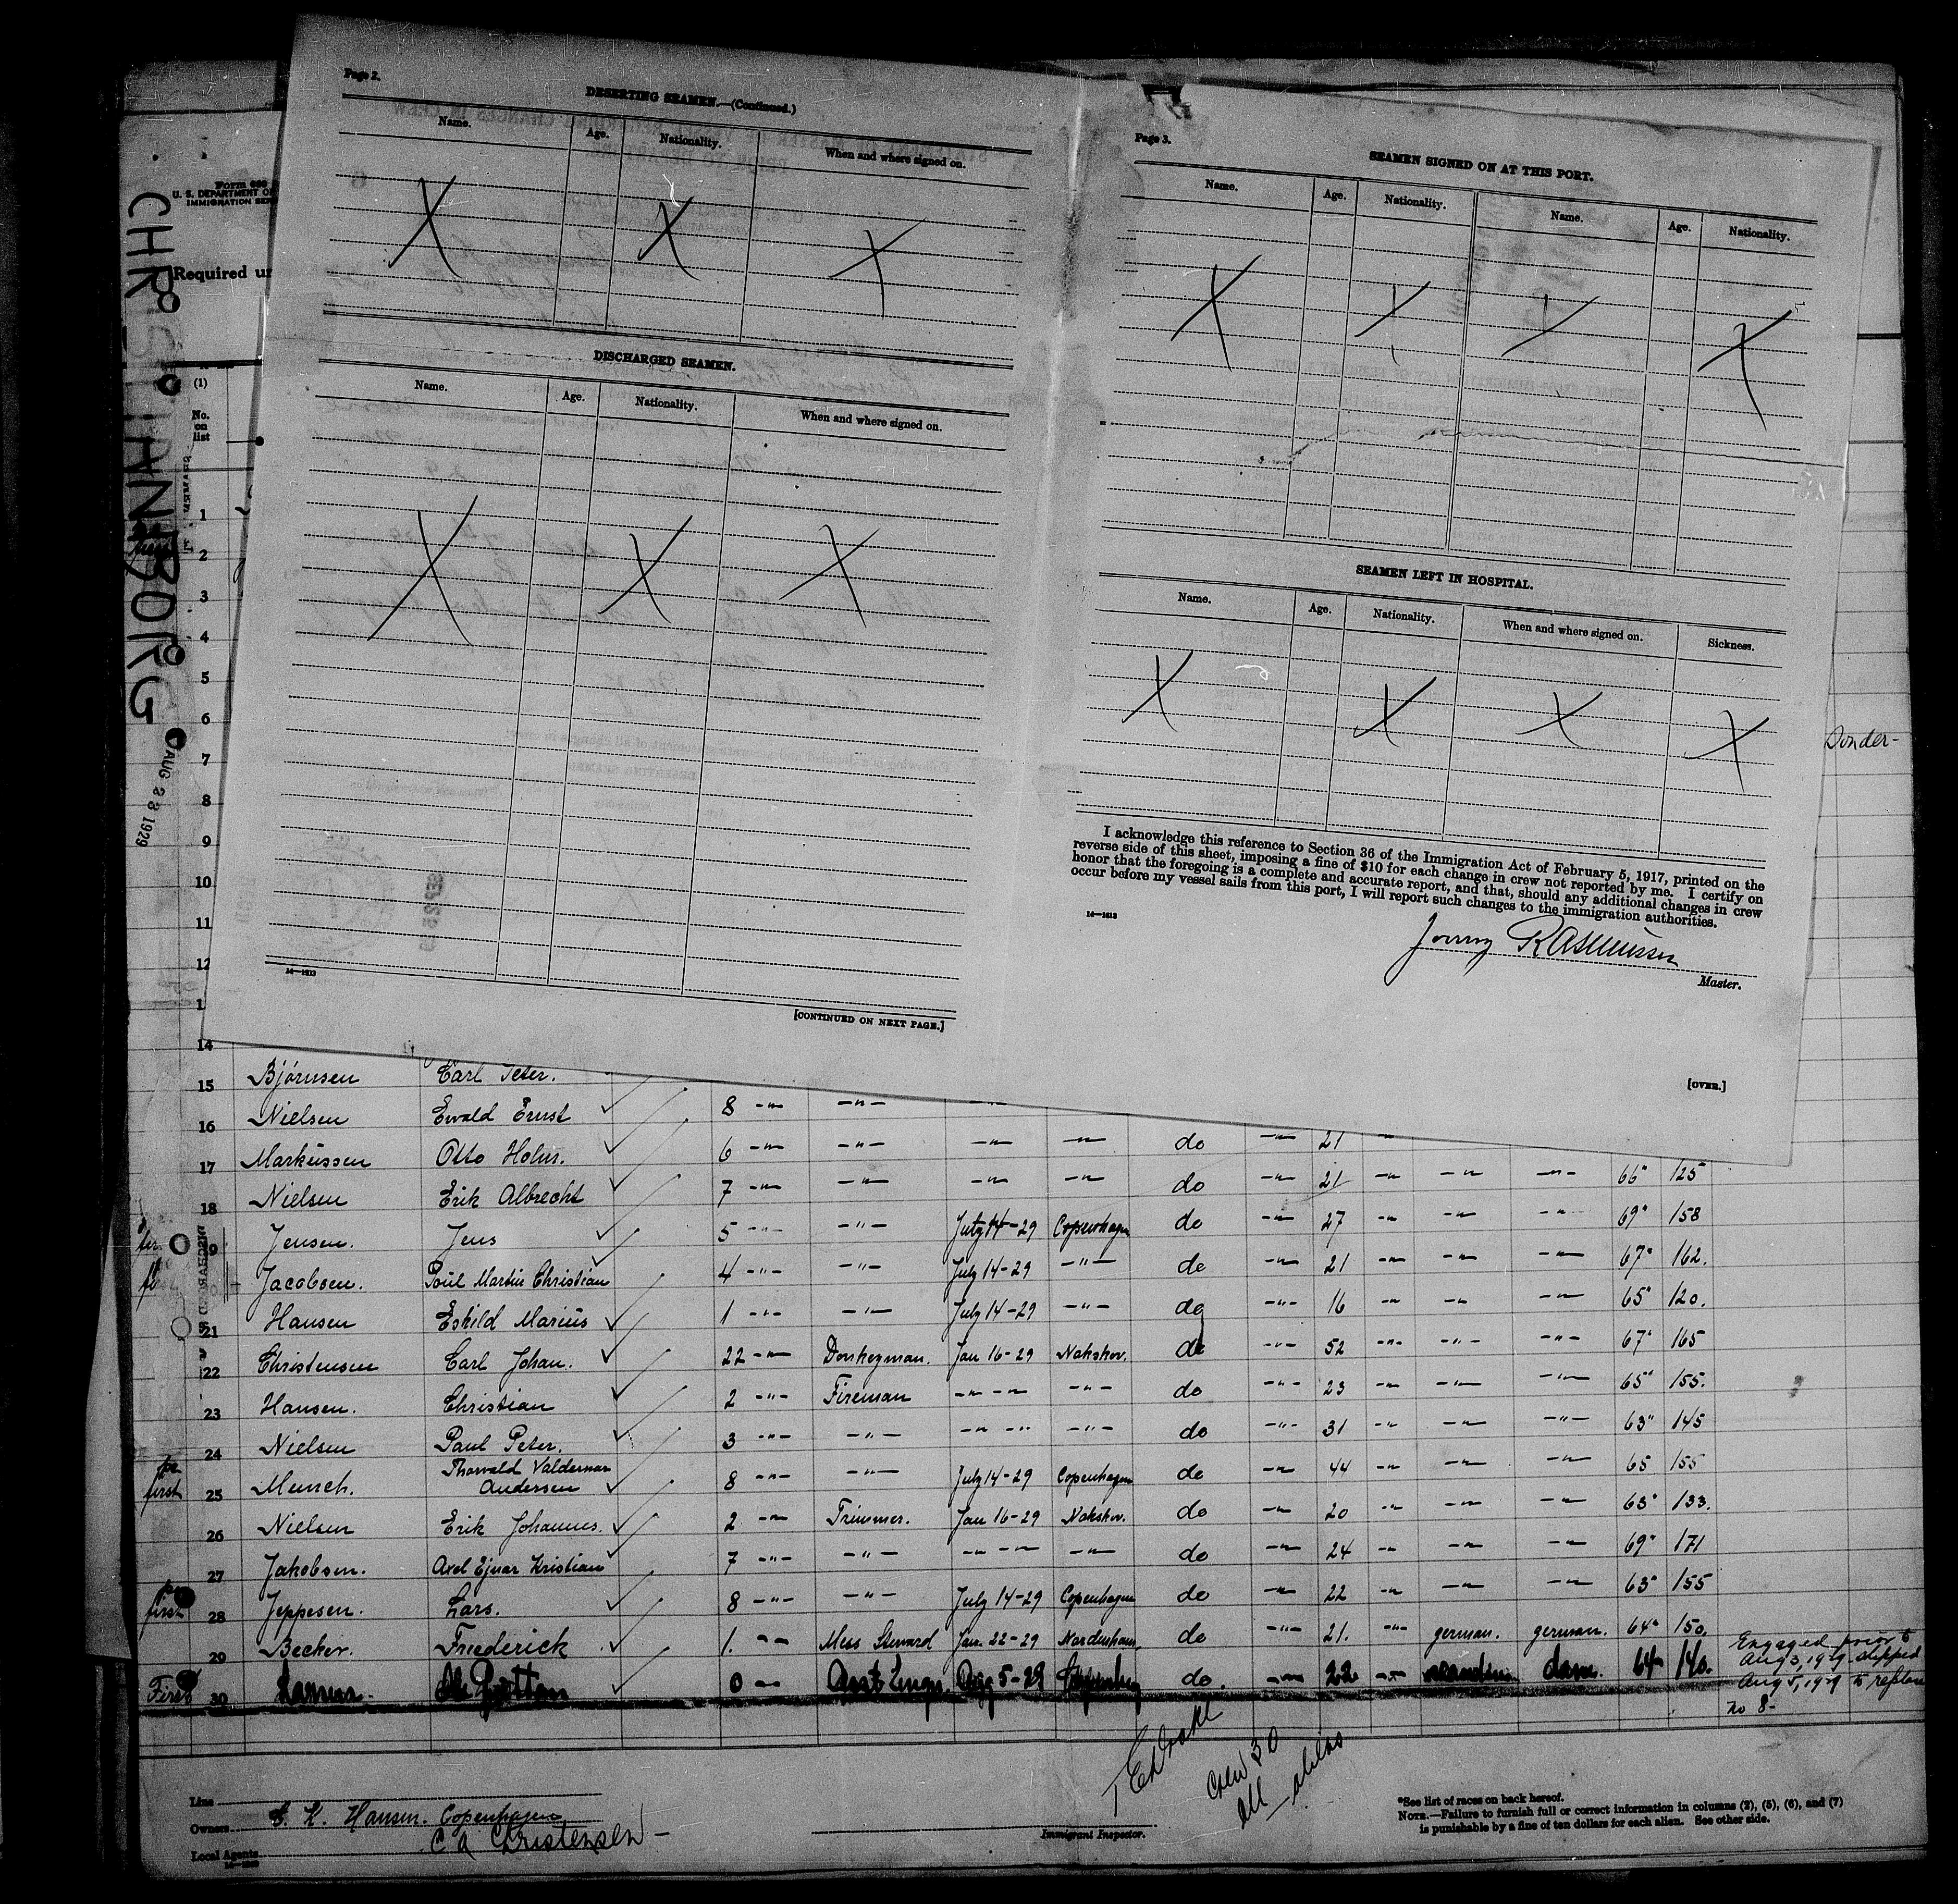 Page 2.
DESERTING SEAMEN.—(Continued.)
Name. Age. Nationality. When and where signed on.
X X X
DISCHARGED SEAMEN.
Name. Age. Nationality. When and where signed on.
X X X
14—1613
[CONTINUED ON NEXT PAGE.]
Page 3.
SEAMEN SIGNED ON AT THIS PORT.
Name. Age. Nationality. Name. Age. Nationality.
X X X X
SEAMEN LEFT IN HOSPITAL.
Name. Age. Nationality. When and where signed on. Sickness.
X X X X
I acknowledge this reference to Section 36 of the Immigration Act of February 5, 1917, printed on the
reverse side of this sheet, imposing a fine of $10 for each change in crew not reported by me. I certify on
honor that the foregoing is a complete and accurate report, and that, should any additional changes in crew
occur before my vessel sails from this port, I will report such changes to the immigration authorities.
14—1613
Rasmussen
Master.
[OVER.]
Form 686
U. S. DEPARTMENT OF
IMMIGRATION SER
Required un
CHRISTIANBORG
AUG 23 1929
(1)
No.
on
list
1
2
3
4
5
6
7
Sonder-
8
9
10
11
12
1
14
15 Bjórnsen Carl Peter.
16 Nielsen Ewald Ernst 8 -"- -"- -"-
17 Markussen Otto Holm. 6 -"- -"- -"- -"- do -"- 21 -"-
18 Nielsen Erik Albrecht 7 -"- -"- -"- -"- do -"- 21 -"- -"- -"- 66" 125
19 Jensen. Jens 5 -"- -"- July 14-29 Copenhagen do -"- 27 -"- -"- -"- 69" 158
Jacobsen. Poul Martin Christian 4 -"- -"- July 14-29 -"- do -"- 21 -"- -"- -"- 67" 162.
21 Hansen Eskild Marius 1 -"- -"- July 14-29 -"- do -"- 16 -"- -"- -"- 65" 120.
22 Christensen Carl Johan. 22 -"- Donkeyman. Jan 16-29 Nakskov. do -"- 52 -"- -"- -"- 67" 165
23 Hansen. Christian 2 -"- Fireman -"- -"- -"- do -"- 23 -"- -"- -"- 65" 155.
24 Nielsen Paul Peter. 3 -"- -"- -"- -"- -"- do -"- 31 -"- -"- -"- 63" 145
first 25 Munch. Thorvald Valdemar Andersen 8 -"- -"- July 14-29 Copenhagen do -"- 44 -"- -"- -"- 65 155
26 Nielsen Erik Johannes. 2 -"- Trimmer. Jan 16-29 Nakskov. do -"- 20 -"- -"- -"- 63" 133.
27 Jakobsen. Axel Ejnar Kristian 7 -"- -"- -"- -"- -"- do -"- 24 -"- -"- -"- 69" 171
first 28 Jeppesen. Lars. 8 -"- -"- July 14-29 Copenhagen do -"- 22 -"- -"- -"- 63" 155
29 Becker. Friederick 1. -"- Mess Steward Jan. 22-29 Nordenham. do -"- 21. -"- german. german. 64" 150.
First 30 0 -"- Aug 5-29 do. -"- 22 -"- dane. 64 140.
Engaged prior to
Aug 3, 1929 shipped
Aug 5, 1929 to replace
no 8-
Crew 30
all aliens
Line
Owners C. K. Hansen. Copenhagen
Local Agents C A Christensen-
Immigrant Inspector.
*See list of races on back hereof.
NOTE.—Failure to furnish full or correct information in columns (2), (5), (6), and (7)
is punishable by a fine of ten dollars for each alien. See other side.